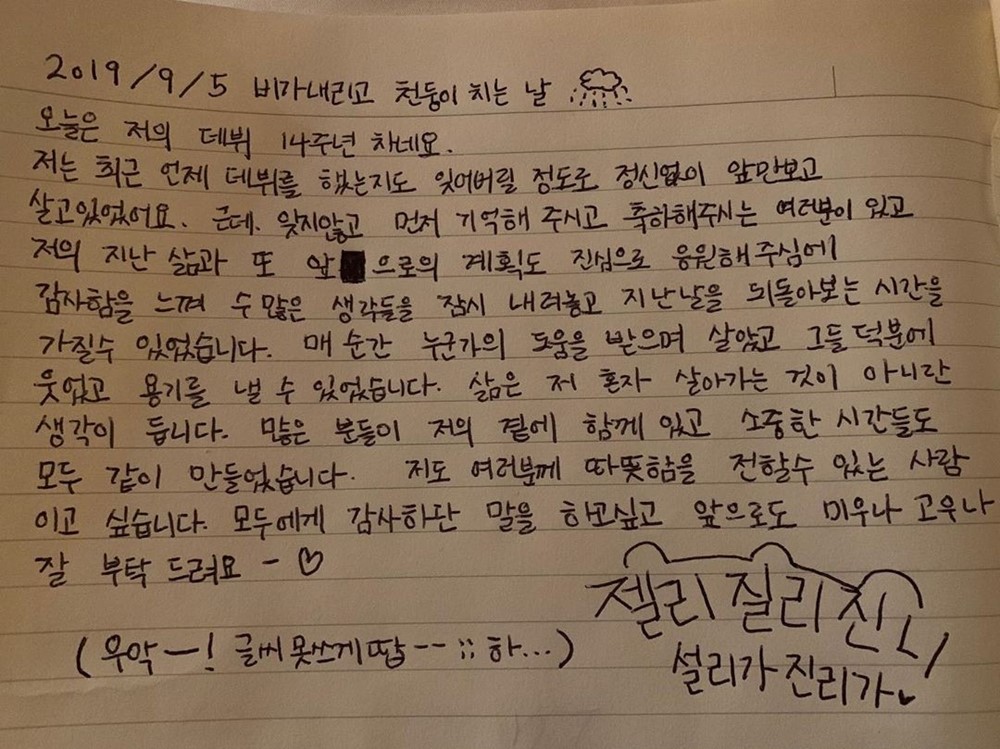 2019/9/5 비가내리고 천둥이 치는 날
오늘은 저의 데뷔 14주년 차네요.
저는 최근 언제 데뷔를 했는지도 잊어버릴 정도로 정신없이 앞만보고
살고있었어요. 근데. 잊지않고 먼저 기억해 주시고 축하해주시는 여러분이 있고
저의 지난 삶과 또 앞 으로의 계획도 진심으로 응원해주심에
감사함을 느껴 수 많은 생각들을 잠시 내려놓고 지난날을 뒤돌아보는 시간을
가질수 있었습니다. 매 순간 누군가의 도움을 받으며 살았고 그들 덕분에
웃었고 용기를 낼 수 있었습니다. 삶은 저 혼자 살아가는 것이 아니란
생각이 듭니다. 많은 분들이 저의 곁에 함께 있고 소중한 시간들도
모두 같이 만들었습니다. 저도 여러분께 따뜻함을 전할수 있는 사람
이고 싶습니다. 모두에게 감사하단 말을 하고싶고 앞으로도 미우나 고우나
잘 부탁 드려요 - ♡
젤리 질리 진
(우악ㅡ! 글씨 못쓰게땁--;; 하...)
설리가 진리가